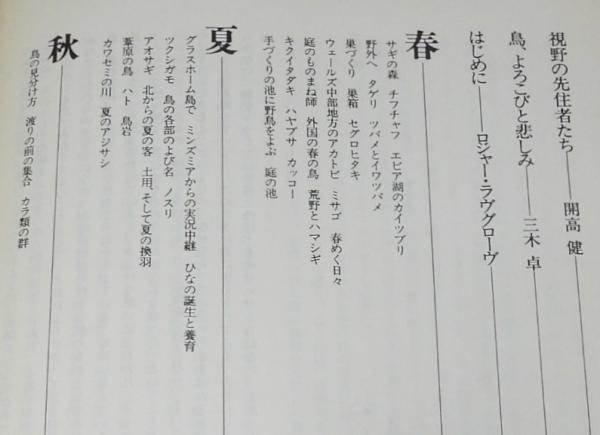 視野の先住者たち――開高 健
鳥、よろこびと悲しみ――三木 卓
はじめに――ロジャー・ラヴグローヴ
春
サギの森 チフチャフ エビア湖のカイツブリ
野外へ タゲリ ツバメとイワツバメ
巣づくり 巣箱 セグロヒタキ
ウェールズ中部地方のアカトビ ミサゴ 春めく日々
庭のものまね師 外国の春の鳥 荒野とハマシギ
キクイタダキ ハヤブサ カッコー
手づくりの池に野鳥をよぶ 庭の池
夏
グラスホーム島で ミンズミアからの実況中継 ひなの誕生と養育
ツクシガモ 鳥の各部のよび名 ノスリ
アオサギ 北からの夏の客 土用、そして夏の換羽
葦原の鳥 ハト 鳥岩
カワセミの川 夏のアジサシ
秋
鳥の見分け方 渡りの前の集合 カラ類の群